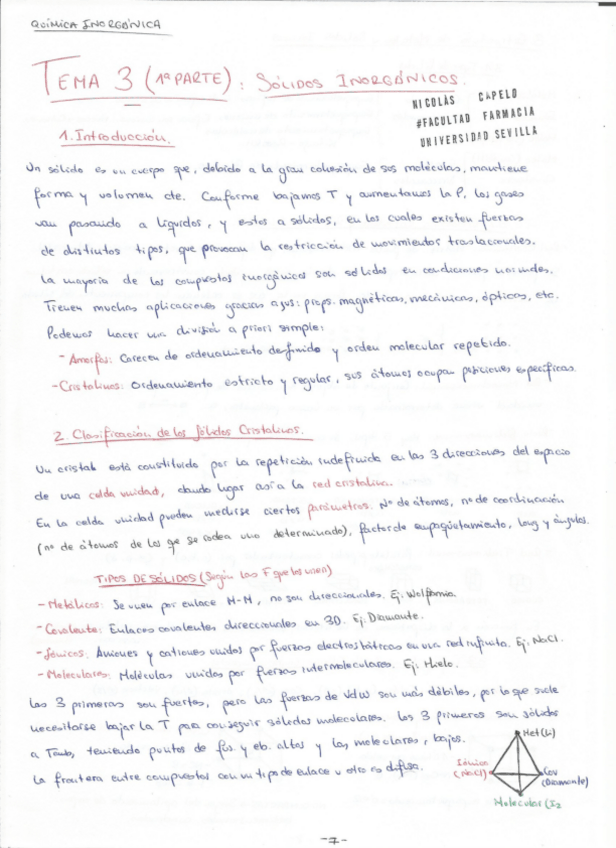 QUÍMICA INORGÁNICA
TEMA 3 (1ª PARTE): SÓLIDOS INORGÁNICOS.
NICOLÁS CAPELO
#FACULTAD FARMACIA
UNIVERSIDAD SEVILLA
1. Introducción.
Un sólido es un cuerpo que, debido a la gran cohesión de sus moléculas, mantiene
forma y volumen cte. Conforme bajamos T y aumentamos la P, los gases
van pasando a líquidos, y estos a sólidos, en los cuales existen fuerzas
de distintos tipos, que provocan la restricción de movimientos traslacionales.
La mayoría de los compuestos inorgánicos son sólidos en condiciones normales.
Tienen muchas aplicaciones gracias a sus: props. magnéticas, mecánicas, ópticas, etc.
Podemos hacer una división a priori simple:
- Amorfos: Carecen de ordenamiento definido y orden molecular repetido.
- Cristalinos: Ordenamiento estricto y regular, sus átomos ocupan posiciones específicas.
2. Clasificación de los Sólidos Cristalinos.
Un cristal está constituido por la repetición indefinida en las 3 direcciones del espacio
de una celda unidad, dando lugar así a la red cristalina.
En la celda unidad pueden medirse ciertos parámetros. Nº de átomos, nº de coordinación
(nº de átomos de los qe se rodea uno determinado), factor de empaquetamiento, long y ángulos.
TIPOS DE SÓLIDOS (Según las F que los unen)
- Metálicos: Se unen por enlace M-M, no son direccionales. Ej: Wolframio.
- Covalente: Enlaces covalentes direccionales en 3D. Ej: Diamante.
- Iónicos: Aniones y cationes unidos por fuerzas electrostáticas en una red infinita. Ej: NaCl.
- Moleculares: Moléculas unidas por fuerzas intermoleculares. Ej: Hielo.
Las 3 primeras son fuertes, pero las fuerzas de VdW son más débiles, por lo que suele
necesitarse bajar la T para conseguir sólidos moleculares. Los 3 primeros son sólidos
a Tamb, teniendo puntos de fus y eb. altos y los moleculares, bajos.
La frontera entre compuestos con un tipo de enlace u otro es difusa.
Met (Li)
Iónico
(NaCl)
Cov
(Diamante)
Molecular (I2
-7-